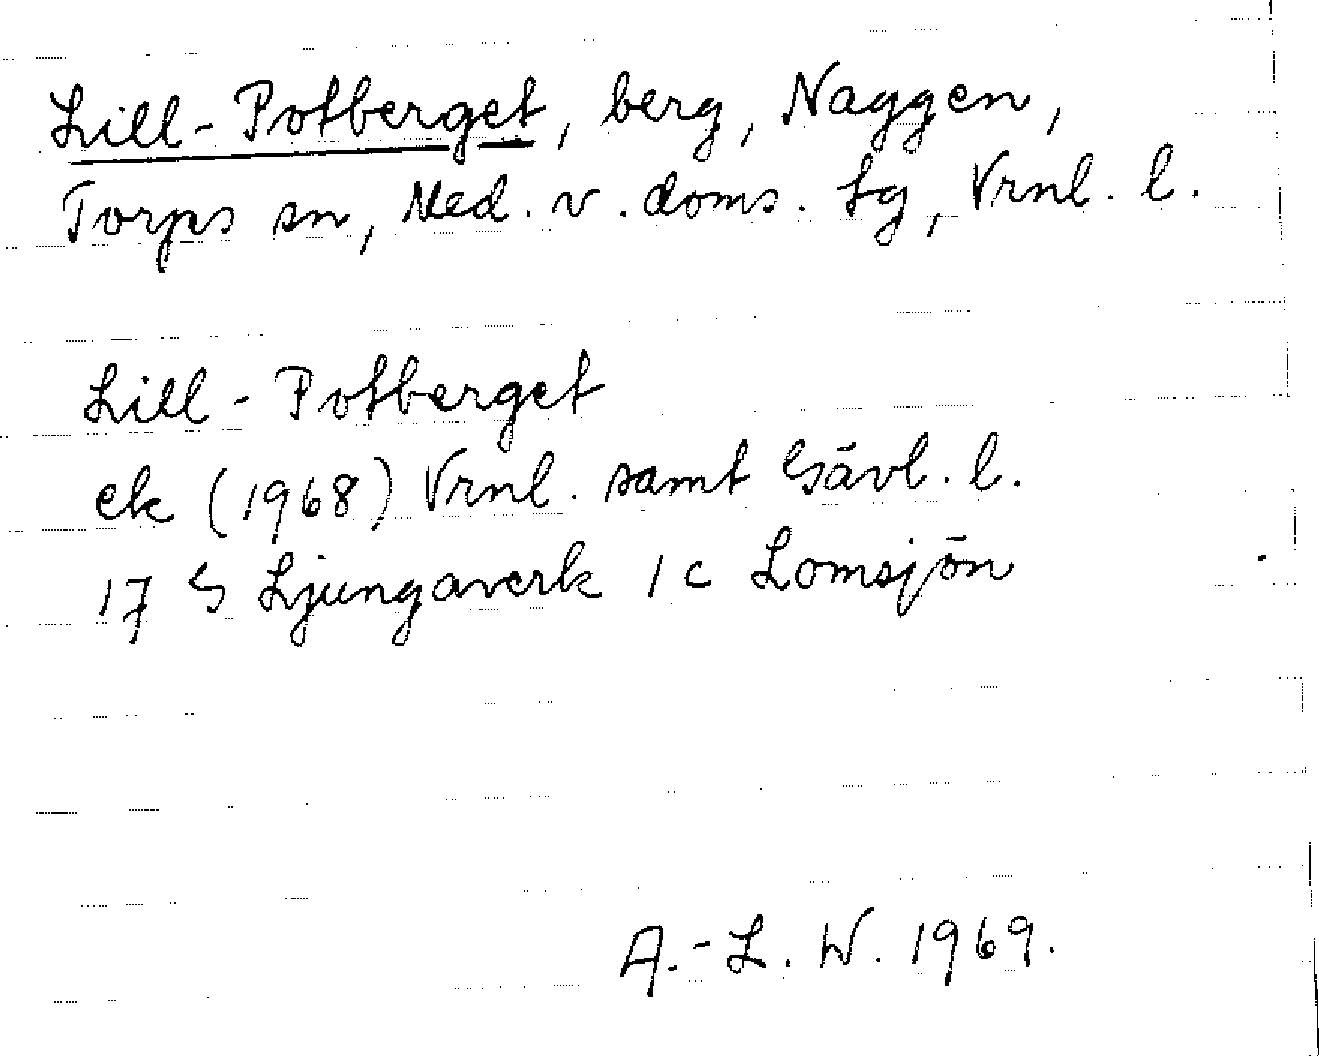 Lill-Potberget, berg, Naggen,
Torps sn, Med. v. doms. tg, Vrnl. l.
Lill-Potberget
ek (1968) Vrnl. samt Gävl. l.
17 G Ljungaverk 1c Lomsjön
A.-L. W. 1969.